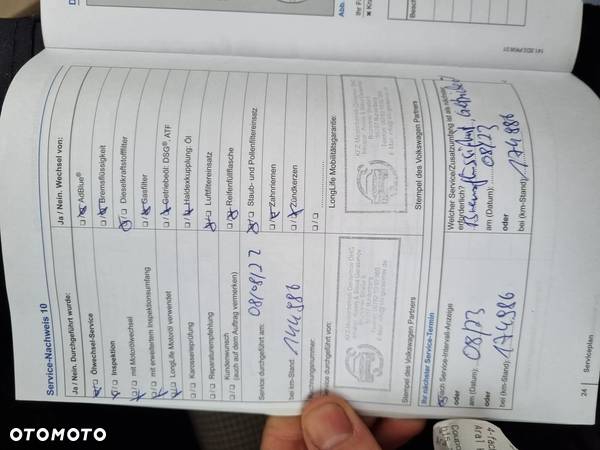 Service-Nachweis 10
Ja / Nein. Durchgeführt wurde:
Ölwechsel-Service
Inspektion
mit Motorölwechsel
mit erweitertem Inspektionsumfang
LongLife Motoröl verwendet
Karosserieprüfung
Reparaturempfehlung
Kundenwunsch
(auch auf dem Auftrag vermerken)
Service durchgeführt am: 08/08/22
bei km-Stand: 144.986
Rechnungsnummer:
Service durchgeführt von:
Stempel des Volkswagen Partners
Ihr nächster Service-Termin
nach Service-Intervall-Anzeige
oder
am (Datum): 08/23
oder
bei (km-Stand): 174.986
Ja / Nein. Wechsel von:
AdBlue®
Bremsflüssigkeit
Dieselkraftstofffilter
Gasfilter
Getriebeöl: DSG® ATF
Haldexkupplung: Öl
Luftfiltereinsatz
Reifenfüllflasche
Staub- und Pollenfiltereinsatz
Zahnriemen
Zündkerzen
LongLife Mobilitätsgarantie:
Stempel des Volkswagen Partners
Welcher Service/Zusatzumfang ist als nächster
erforderlich?
am (Datum): 08/23
oder
bei (km-Stand): 174.986
24 Servicepläne
OTOMOTO